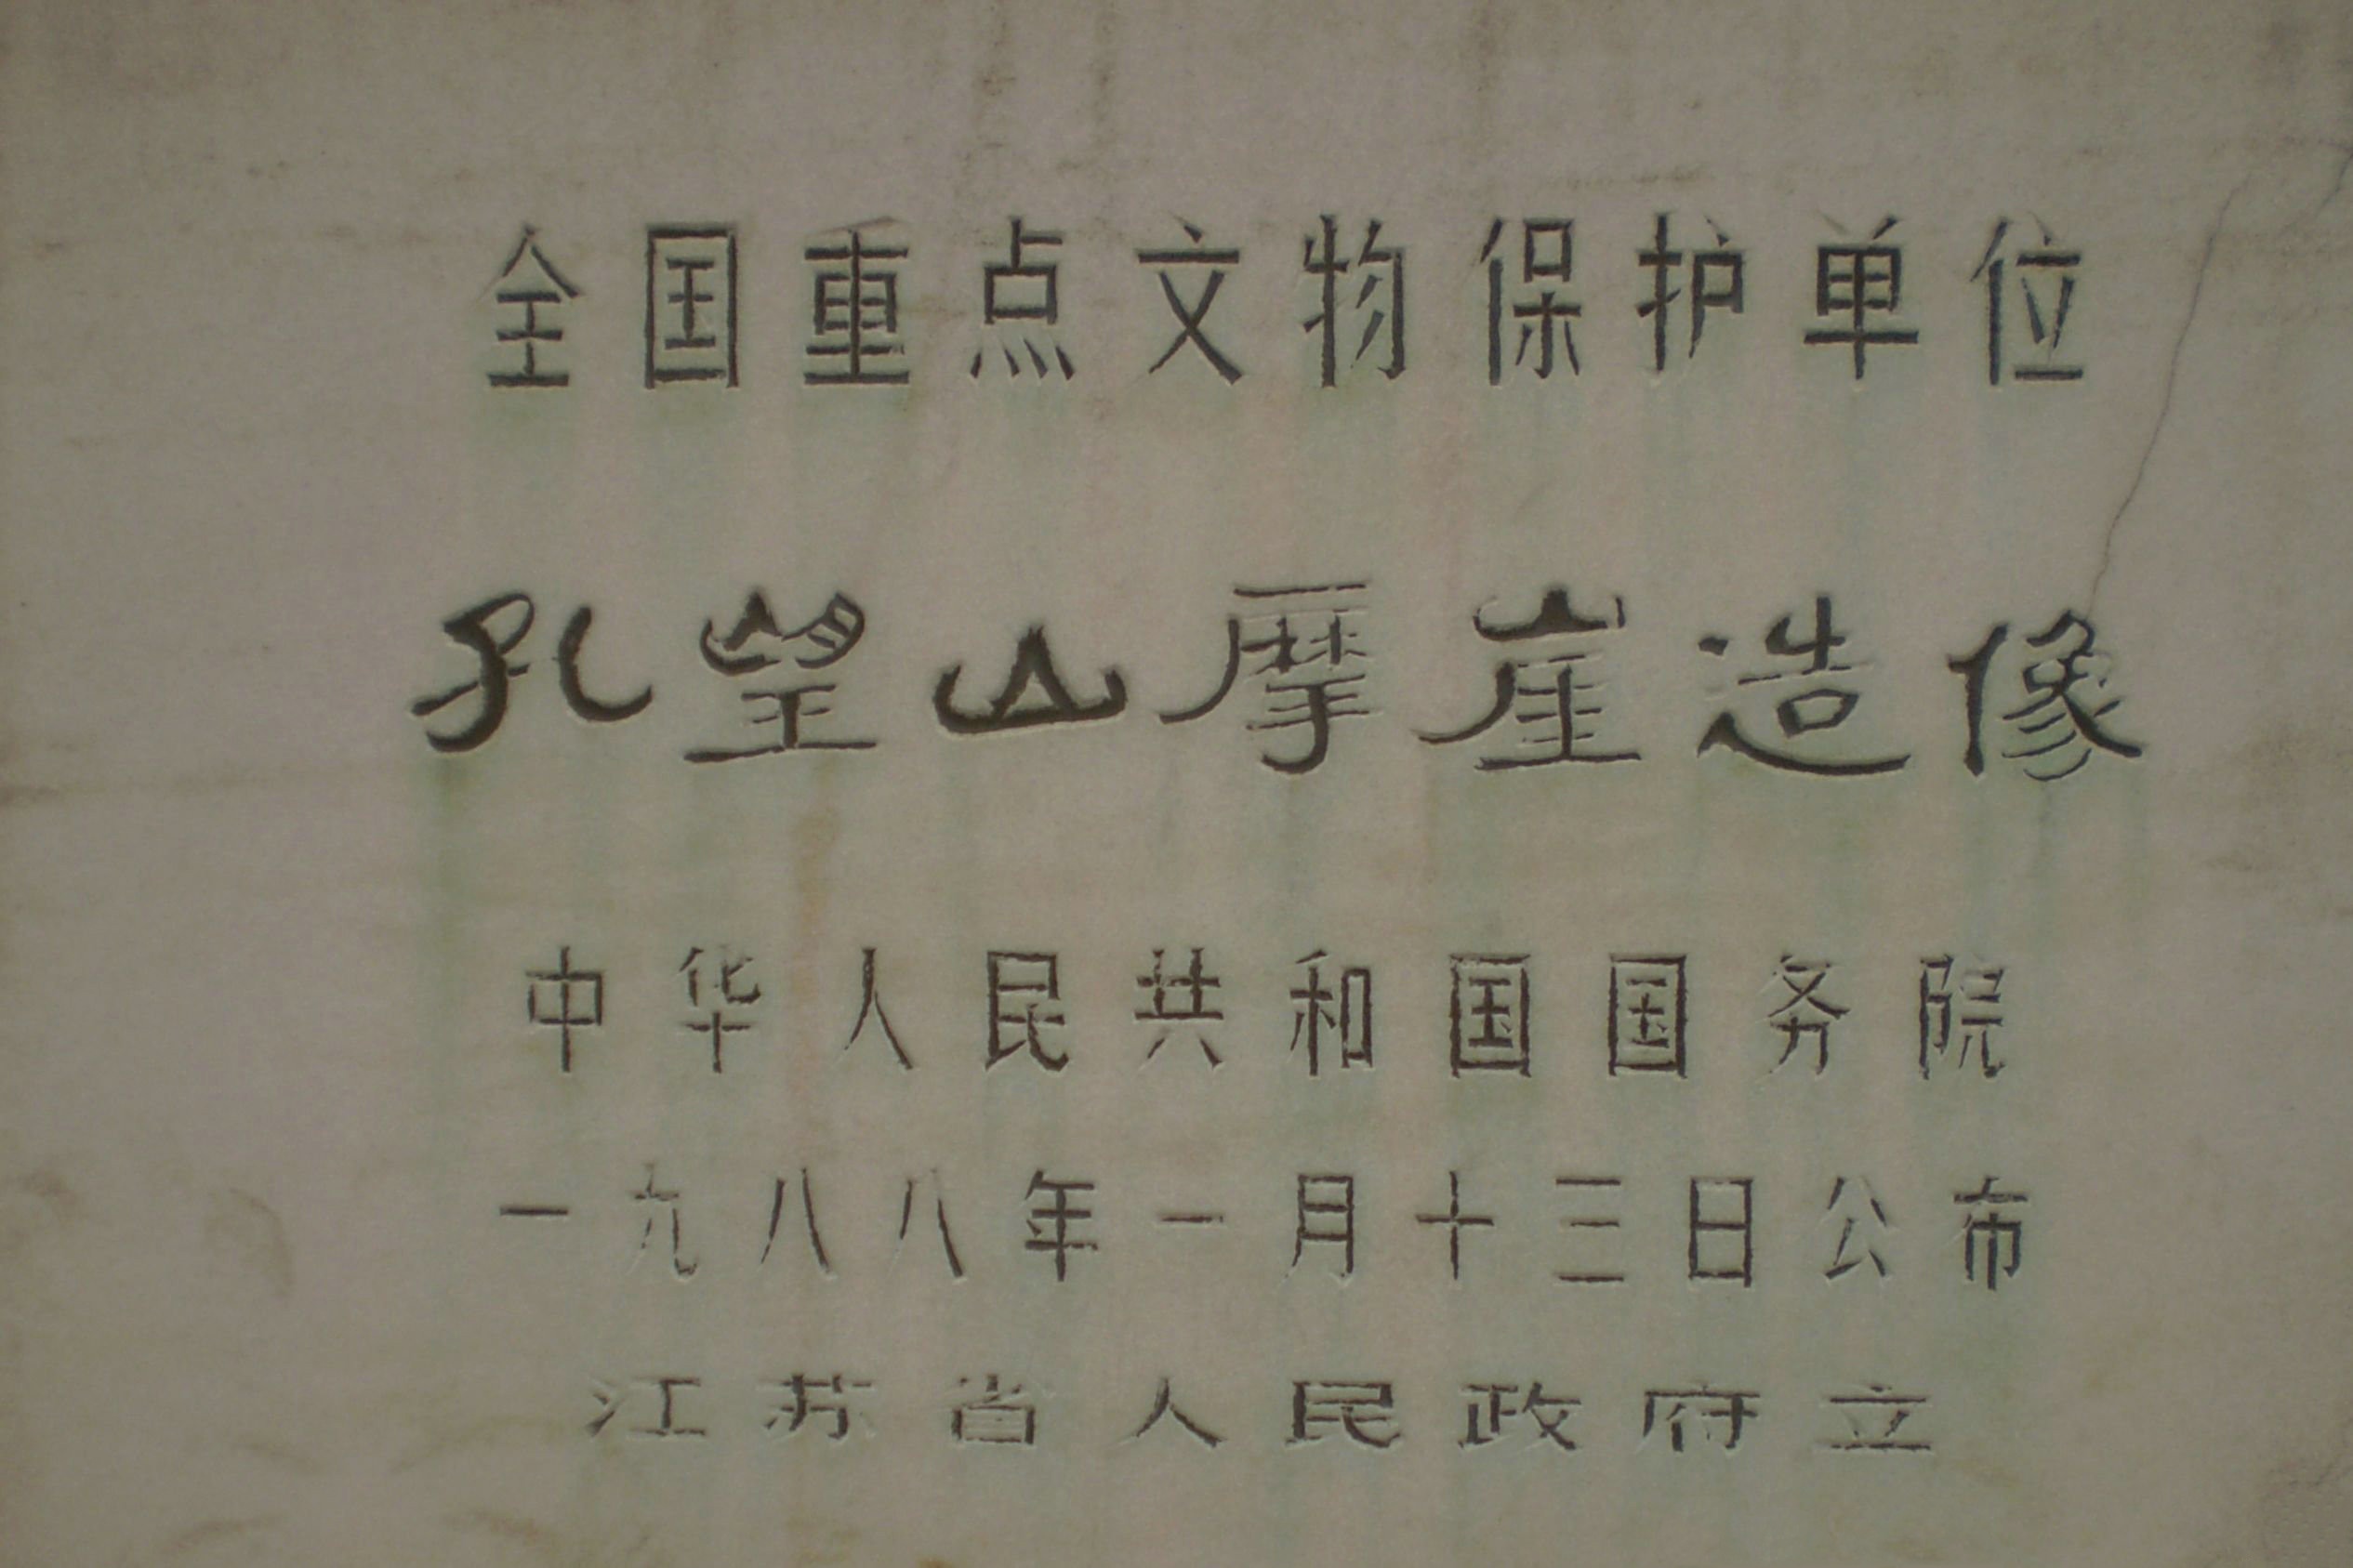 全国重点文物保护单位
孔望山摩崖造像
中华人民共和国国务院
一九八八年一月十三日公布
江苏省人民政府立